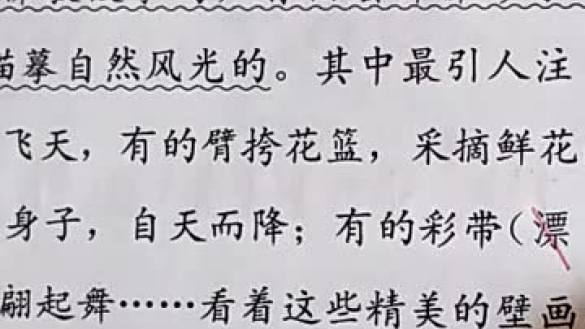 描摹自然风光的。其中最引人注
飞天，有的臂挎花篮，采摘鲜花
身子，自天而降；有的彩带(漂
翩起舞……看着这些精美的壁画